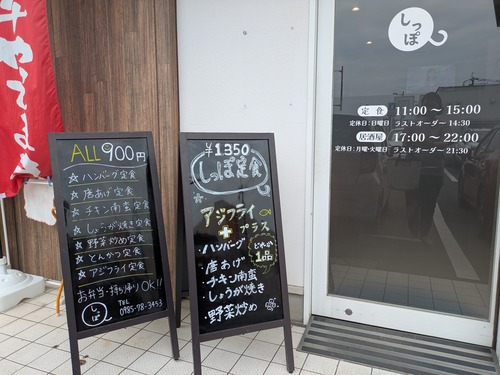 しっぽ
定食 11:00〜15:00
定休日：日曜日 ラストオーダー 14:30
居酒屋 17:00〜22:00
定休日：月曜・火曜日 ラストオーダー 21:30
ALL 900円
★ハンバーグ定食
★唐あげ定食
★チキン南蛮定食
★しょうが焼き定食
★野菜炒め定食
★とんかつ定食
★アジフライ定食
お弁当・持ち帰りOK!!
しっぽ
TEL
0985-78-3453
¥1350
しっぽ定食
アジフライ
+プラス
・ハンバーグ
・唐あげ
・チキン南蛮
・しょうが焼き
・野菜炒め
1品